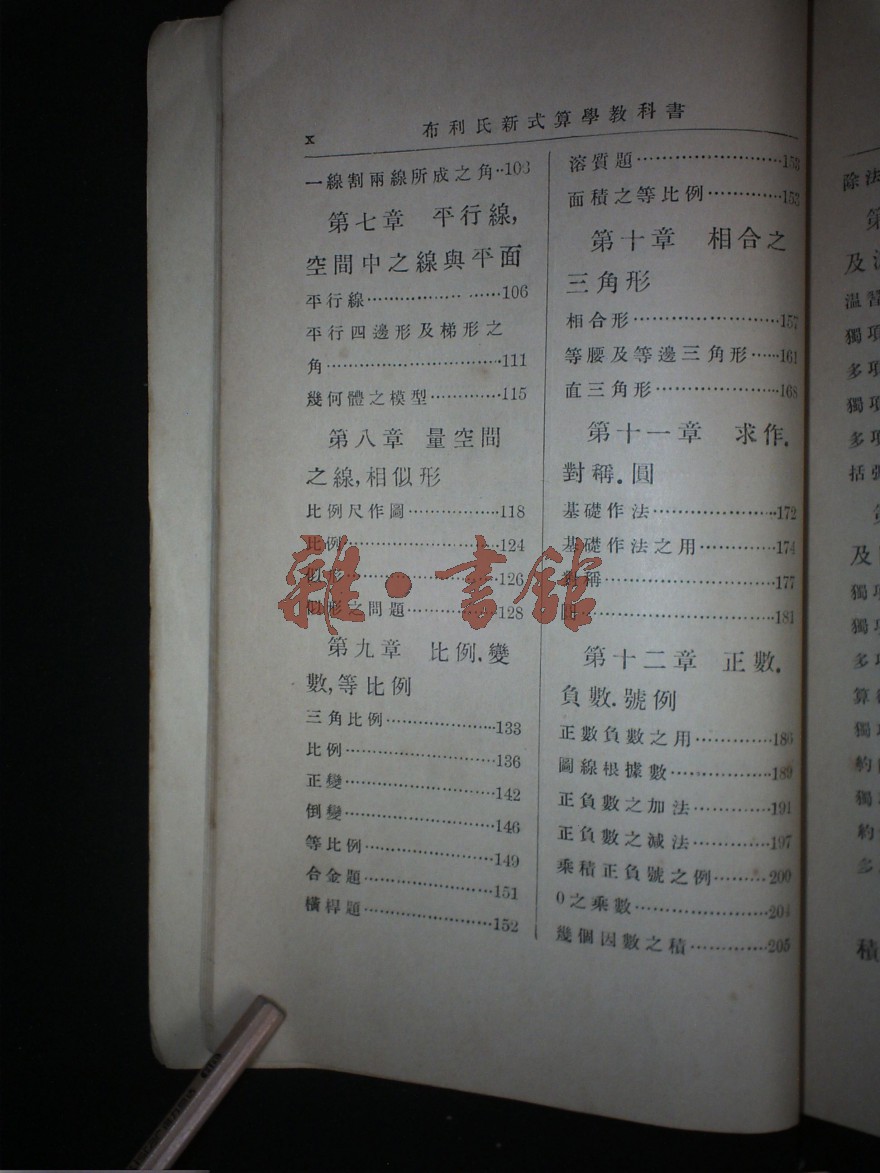 x
布利氏新式算學教科書
一線割兩線所成之角··103
第七章 平行線,
空間中之線與平面
平行線……………… ……106
平行四邊形及梯形之
角……………………………111
幾何體之模型…………115
第八章 量空間
之線,相似形
比例尺作圖………………118
比例…………………………124
似形…………………………126
似形之問題………………128
第九章 比例.變
數,等比例
三角比例…………………133
比例…………………………136
正變…………………………142
倒變…………………………146
等比例………………………149
合金題………………………151
橫桿題………………………152
溶質題………………………153
面積之等比例……………153
第十章 相合之
三角形
相合形………………………157
等腰及等邊三角形……161
直三角形……………………168
第十一章 求作.
對稱.圓
基礎作法……………………172
基礎作法之用……………174
對稱…………………………177
圓……………………………181
第十二章 正數.
負數.號例
正數負數之用……………186
圖線根據數………………189
正負數之加法……………191
正負數之減法……………197
乘積正負號之例………200
0之乘數……………………204
幾個因數之積……………205
雜·書館
除法
第
及
溫習
獨項
多項
獨項
多項
括弧
第
及
獨項
獨項
多項
算
獨
約
獨
約
多
積